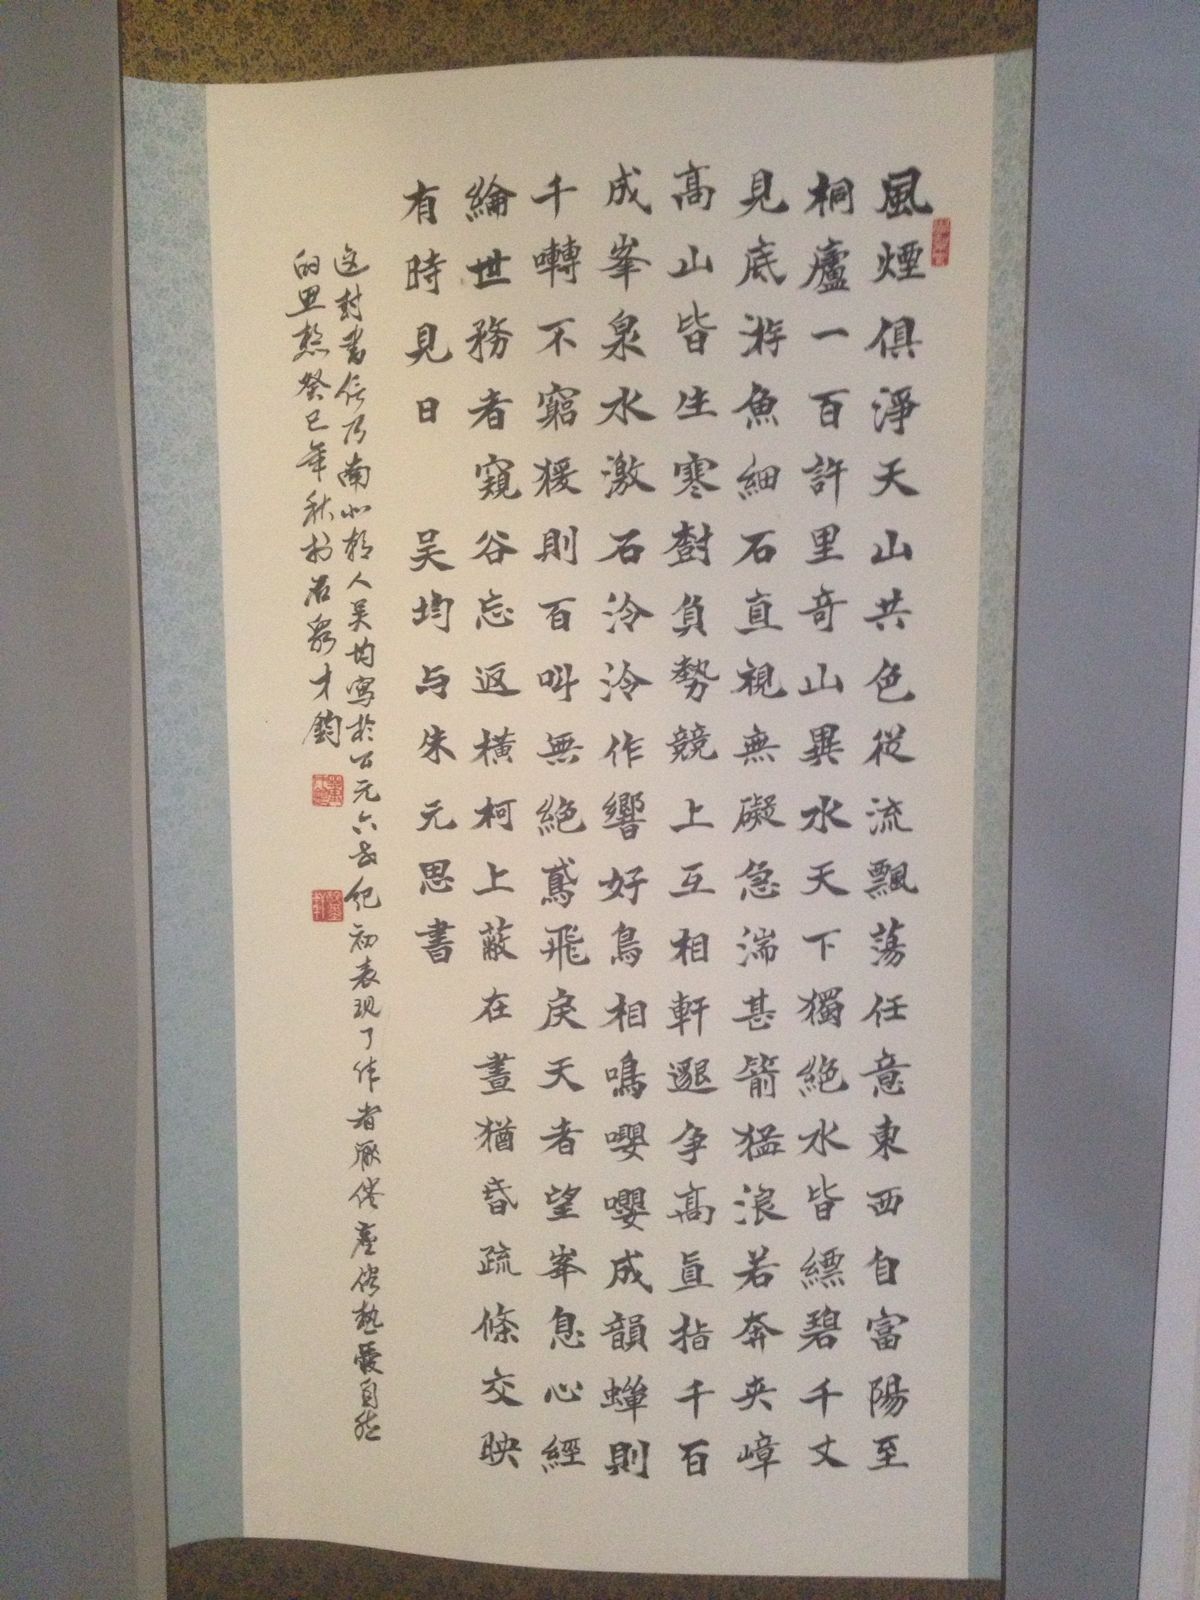 風煙俱淨天山共色從流飄蕩任意東西自富陽至
桐廬一百許里奇山異水天下獨絕水皆縹碧千丈
見底游魚細石直視無礙急湍甚箭猛浪若奔夾嶂
高山皆生寒樹負勢競上互相軒邈争高直指千百
成峯泉水激石泠泠作響好鳥相鳴嚶嚶成韻蟬則
千囀不窮猨則百叫無絕鳶飛戾天者望峯息心經
綸世務者窺谷忘返橫柯上蔽在晝猶昏疏條交映
有時見日 吴均与朱元思書
这封書信乃南北朝人吴均寫於公元六世纪初表现了作者厭倦塵俗热爱自然
的思想癸巳年秋於才鈞